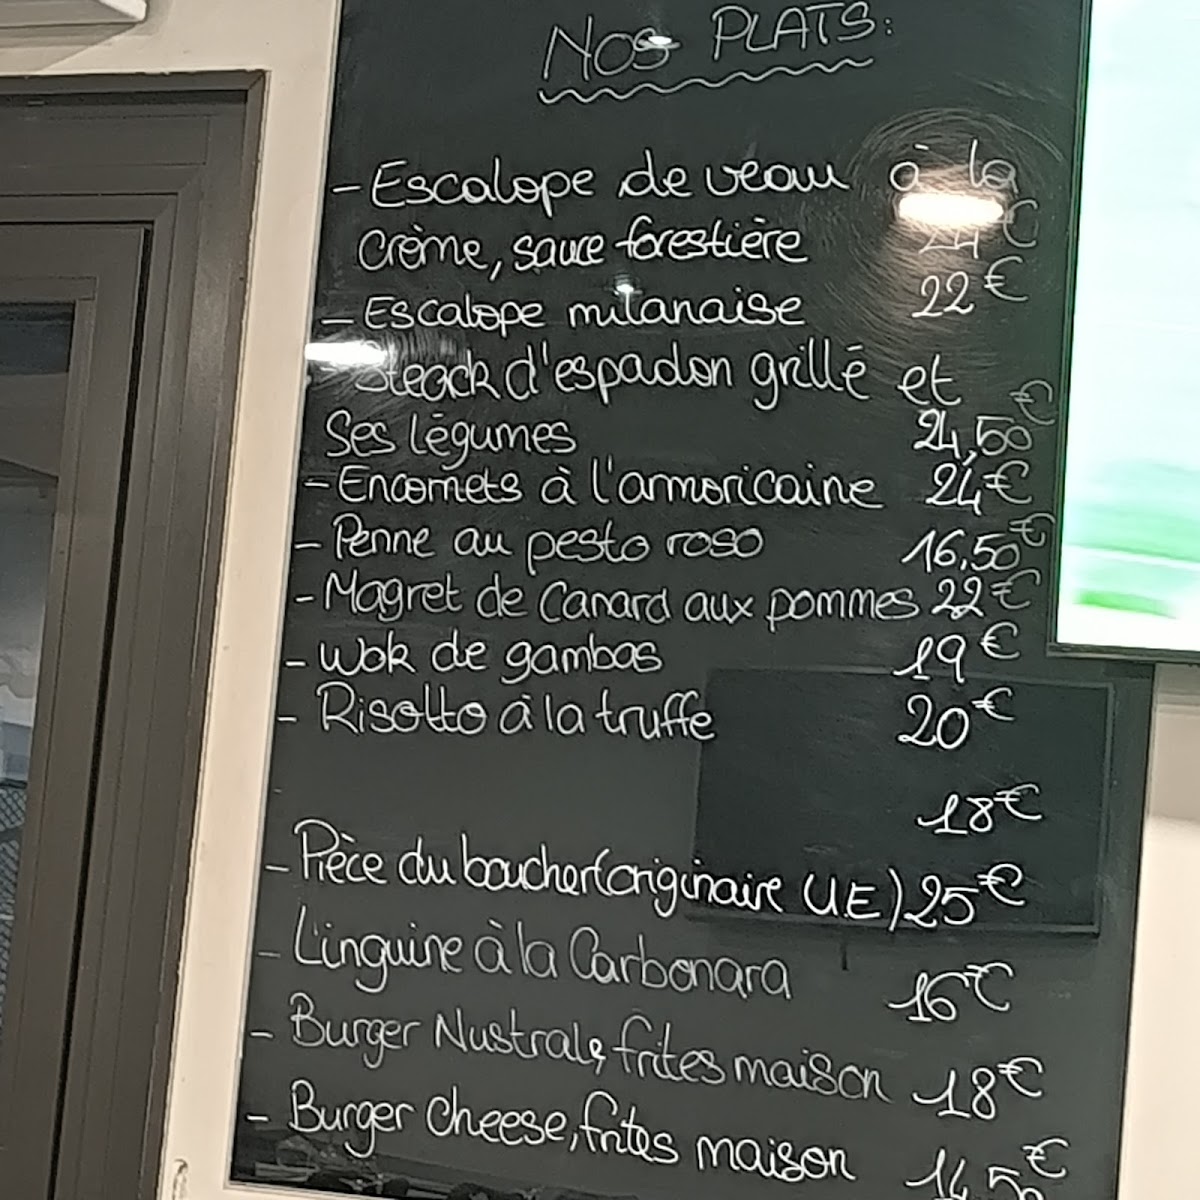 NOS PLATS:
- Escalope de veau à la
Crème, sauce forestière 24€
- Escalope milanaise 22€
- Steack d'espadon grillé et
Ses légumes 24,50€
- Encornets à l'armoricaine 24€
- Penne au pesto roso 16,50€
- Magret de Canard aux pommes 22€
- Wok de gambas 19€
- Risotto à la truffe 20€
18€
- Pièce du boucher (originaire UE) 25€
- Linguine à la Carbonara 16€
- Burger Nustrale, frites maison 18€
- Burger Cheese, frites maison 14,50€